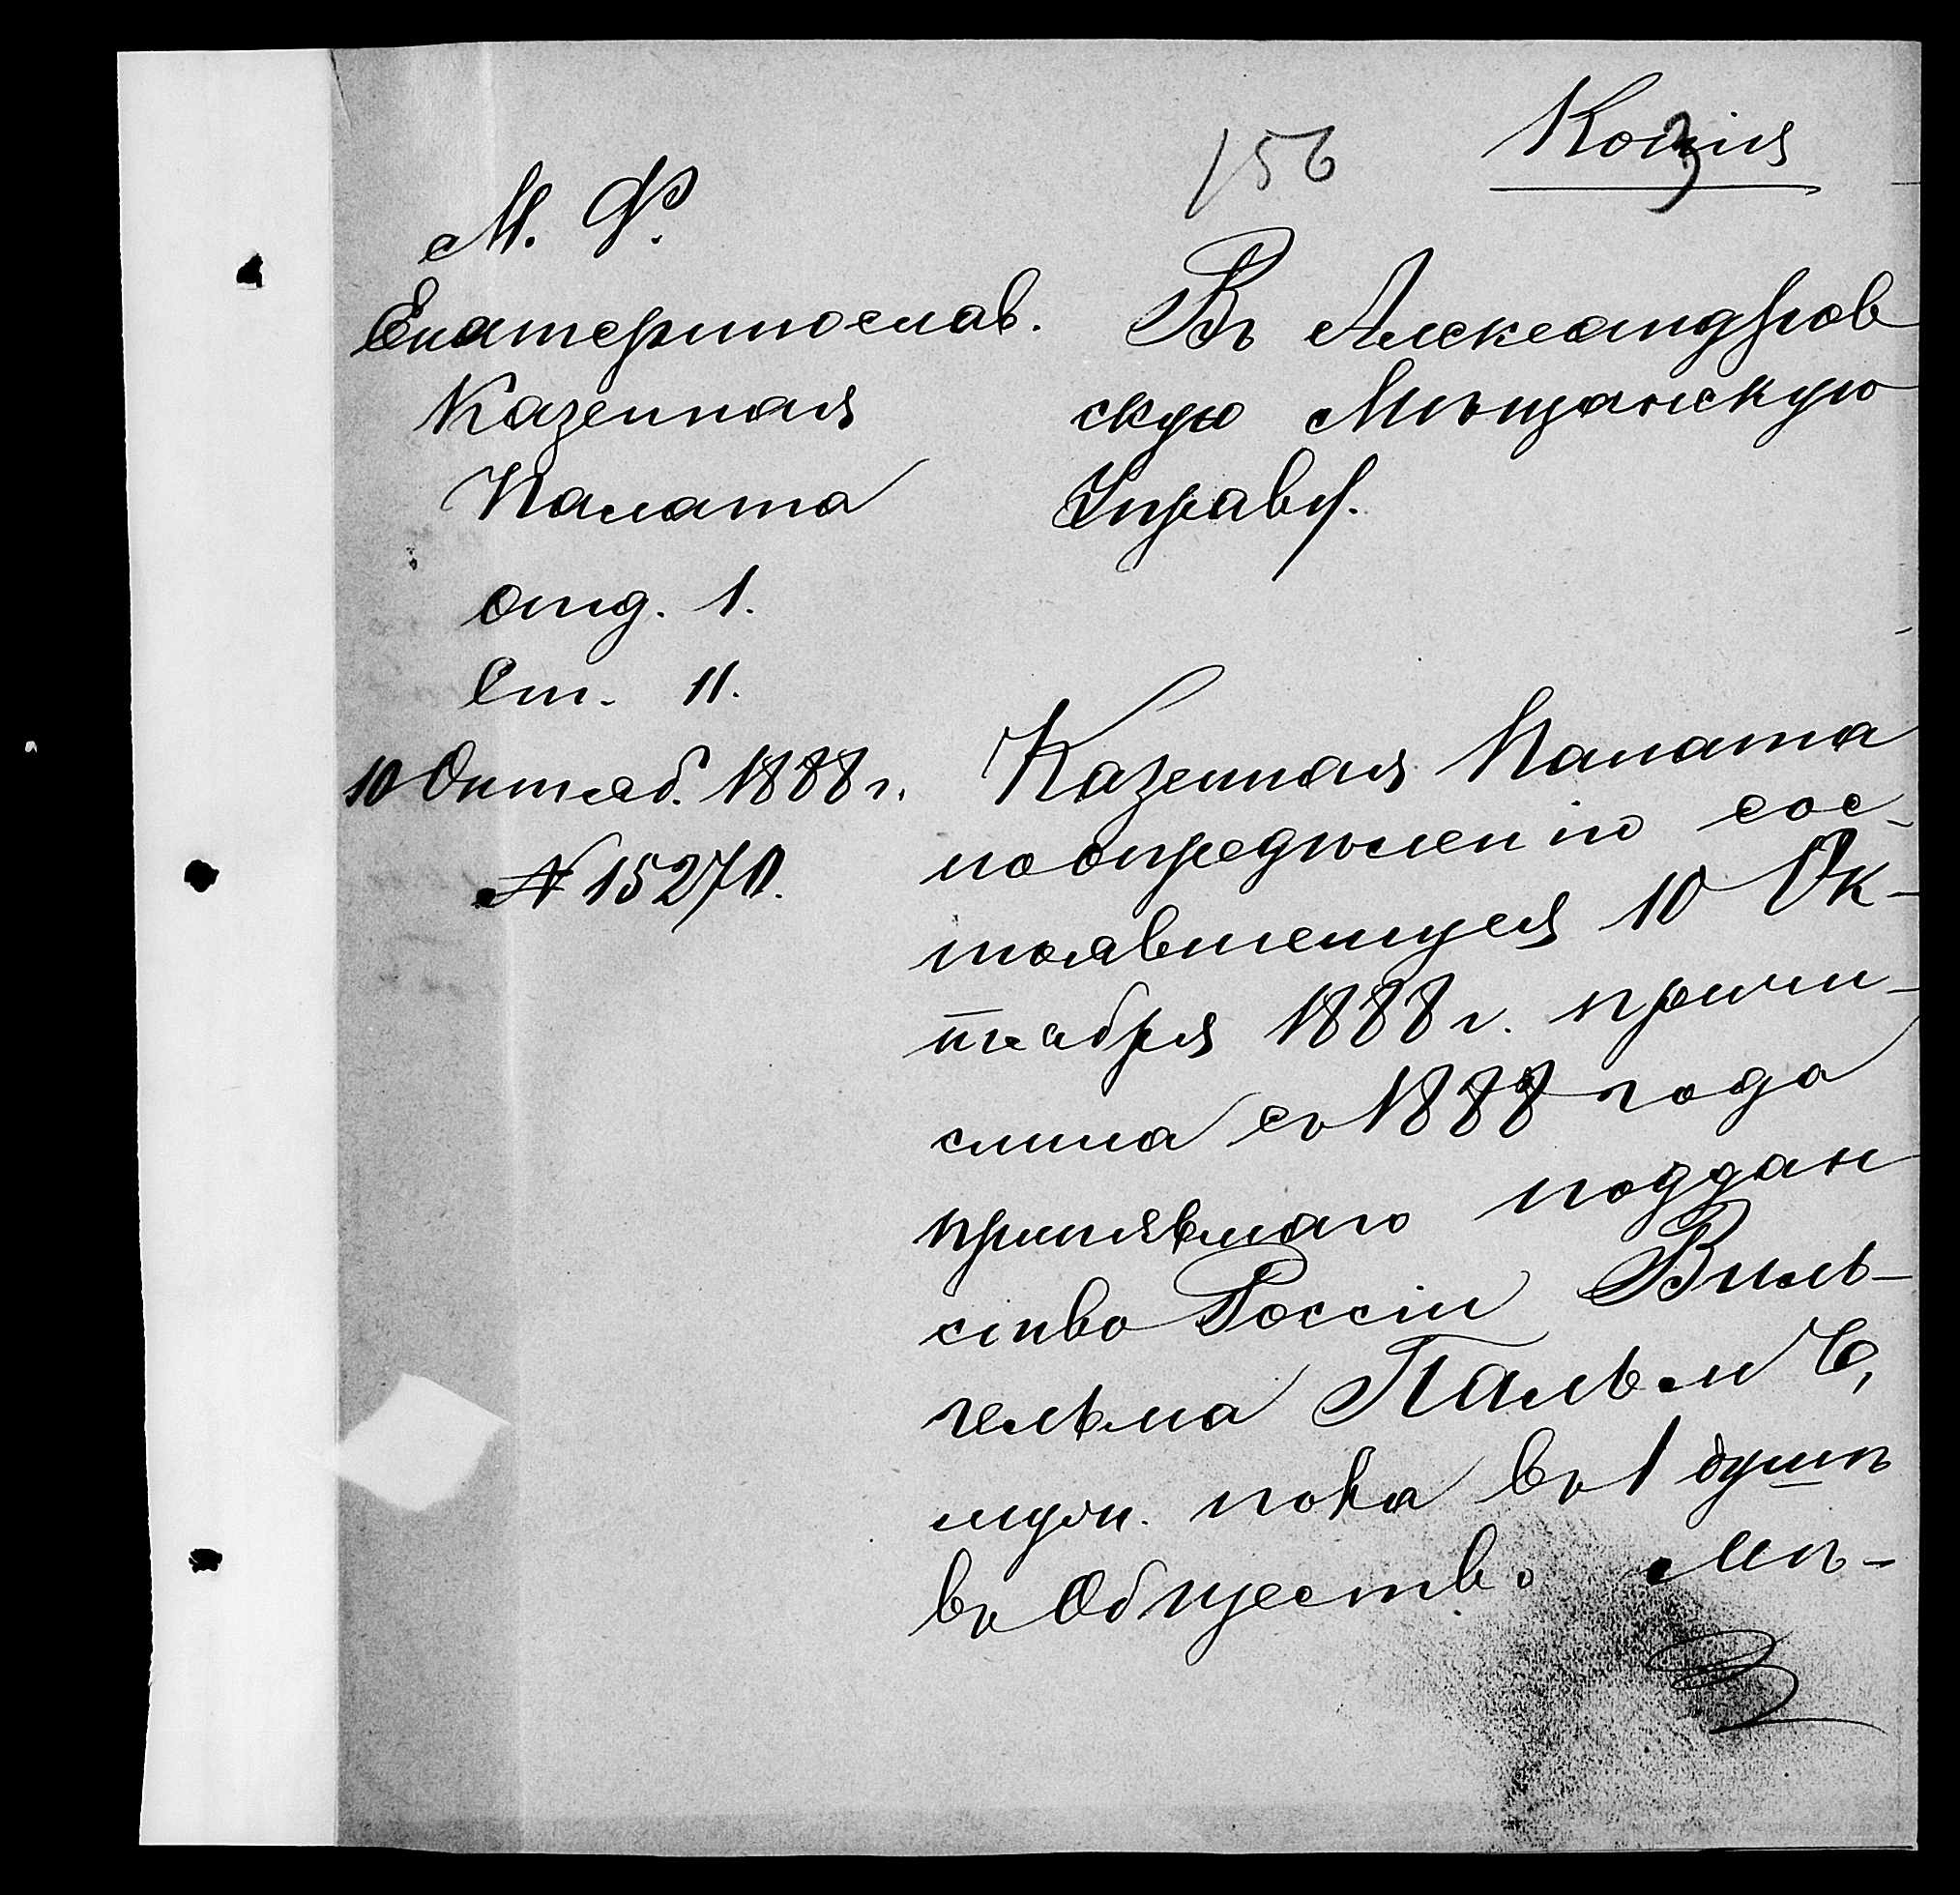 156 Копія
3
М. Ф.
Екатеринослав.
Казенная
Палата
Отд. 1.
Ст. 11.
10 Октяб. 1888 г.
№ 15270.
Въ Александров
скую Мѣщанскую
Управу.
Казенная Палата
по опредѣленію сос-
тоявшемуся 10 Ок-
тября 1888 г. причи-
слила съ 1888 года
принявшаго поддан
ство Россіи Виль-
гельма Пальм
муж. пола въ 1 душѣ
въ Общество Мѣ-